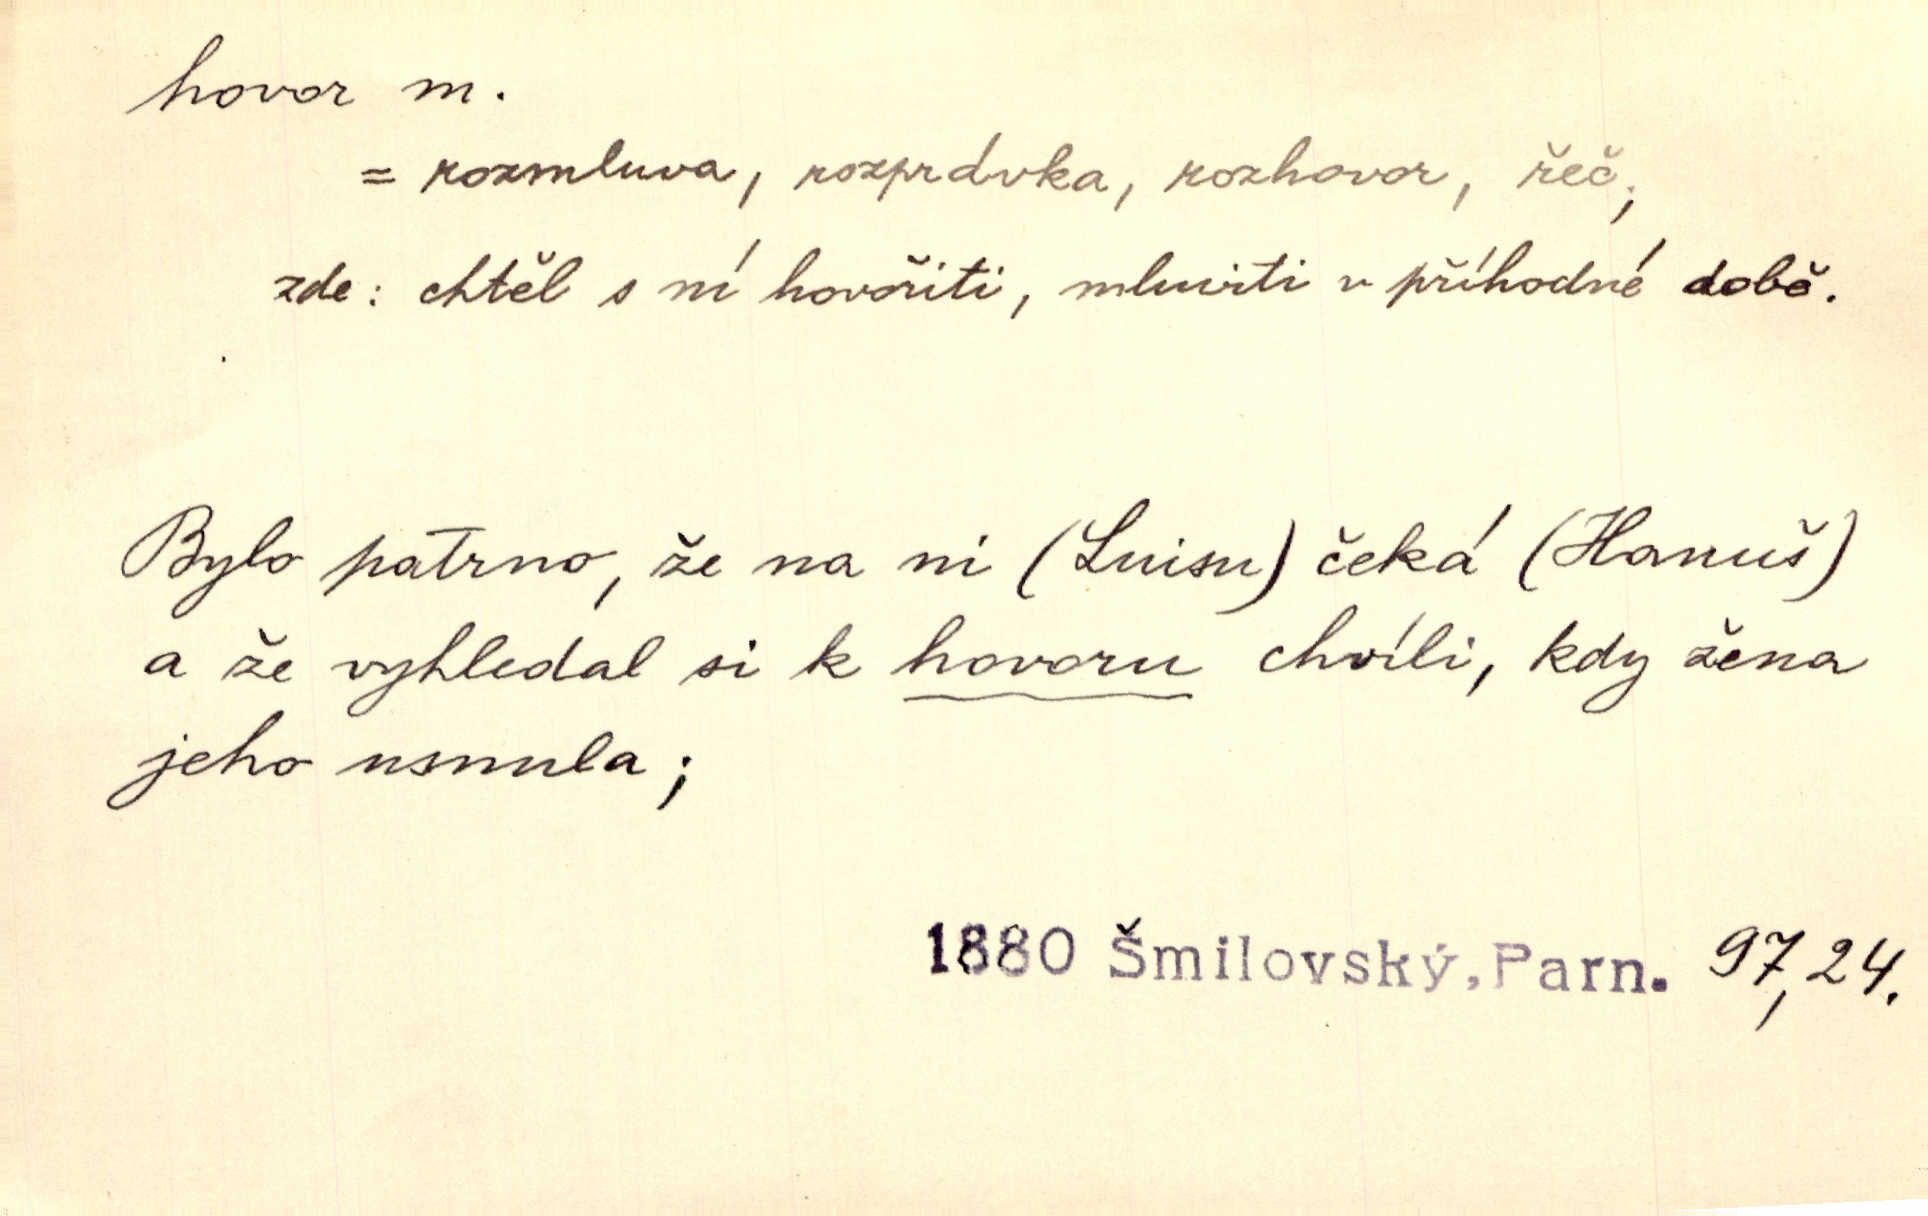 hovor m.
= rozmluva, rozprávka, rozhovor, řeč;
zde: chtěl s ní hovořiti, mluviti v příhodné době.
Bylo patrno, že na ni (Luisu) čeká (Hanuš)
a že vyhledal si k hovoru chvíli, kdy žena
jeho usnula;
1880 Šmilovský, Parn. 97,24.